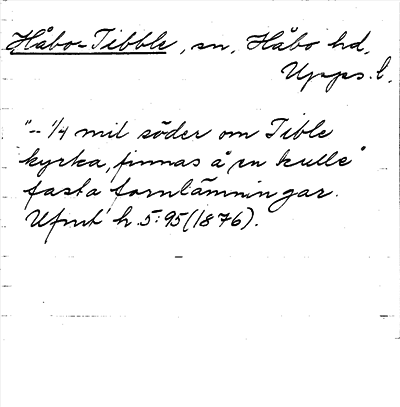 Håbo-Tibble, sn, Håbo hd,
Upps. l.
"-- 1/4 mil söder om Tible
kyrka, finnas å en kulle"
fasta fornlämningar.
Ufmt h. 5:95 (1876).